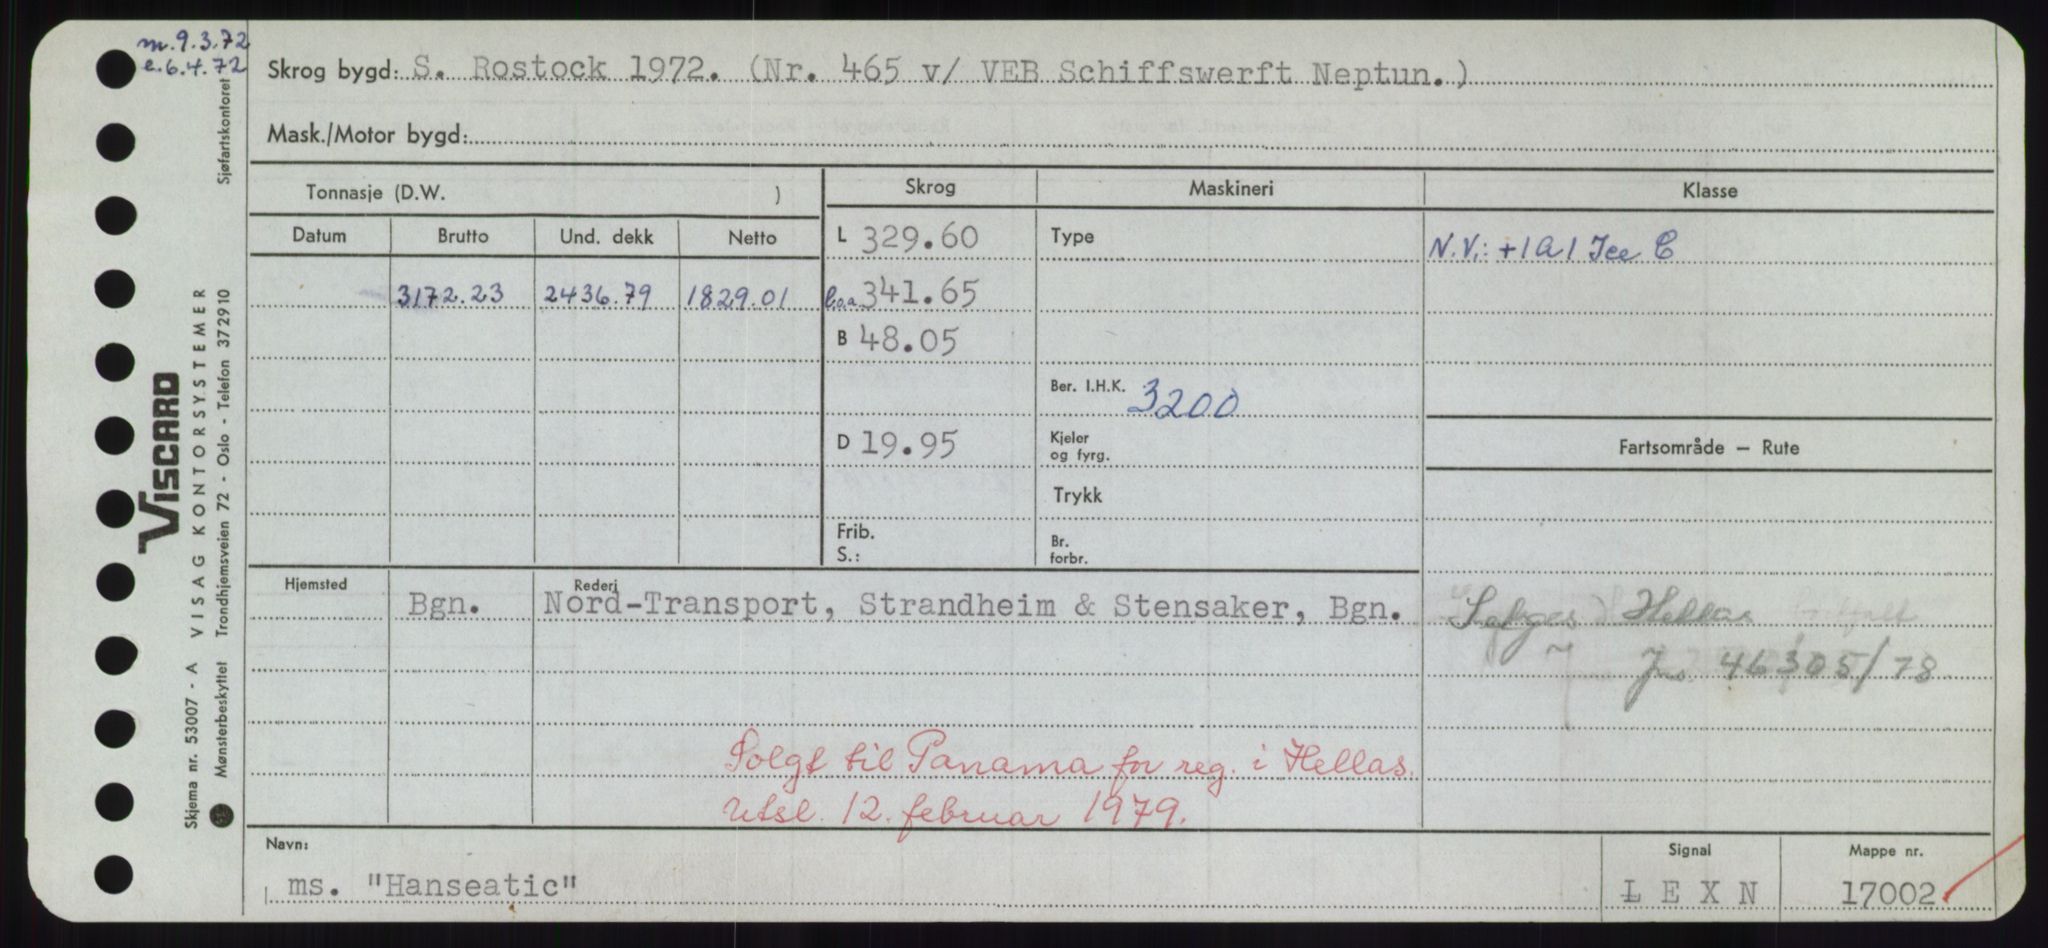 m. 9.3.72
e. 6.4.72
Skrog bygd: S. Rostock 1972. (Nr. 465 v/ VEB Schiffswerft Neptun.)
Mask./Motor bygd:
Tonnasje (D.W. )
Skrog
Maskineri
Klasse
Datum Brutto Und. dekk Netto
L 329.60
Type
N.V.: +1A1 Ice C
3172.23 2436.79 1829.01
l.o.a. 341.65
B 48.05
Ber. I.H.K. 3200
D 19.95
Kjeler
og fyrg.
Fartsområde — Rute
Trykk
Frib.
S.:
Br.
forbr.
Hjemsted
Rederi
Bgn. Nord-Transport, Strandheim & Stensaker, Bgn.
Selges Hellas
Jnr. 46305/78
Solgt til Panama for reg. i Hellas.
Utsl. 12. februar 1979.
Navn:
ms. "Hanseatic"
Signal
L E X N
Mappe nr.
17002
VISCARD
Skjema nr. 53007 - A VISAG KONTORSYSTEMER
Mønsterbeskyttet Trondhjemsveien 72 - Oslo - Telefon 372910 Sjøfartskontoret